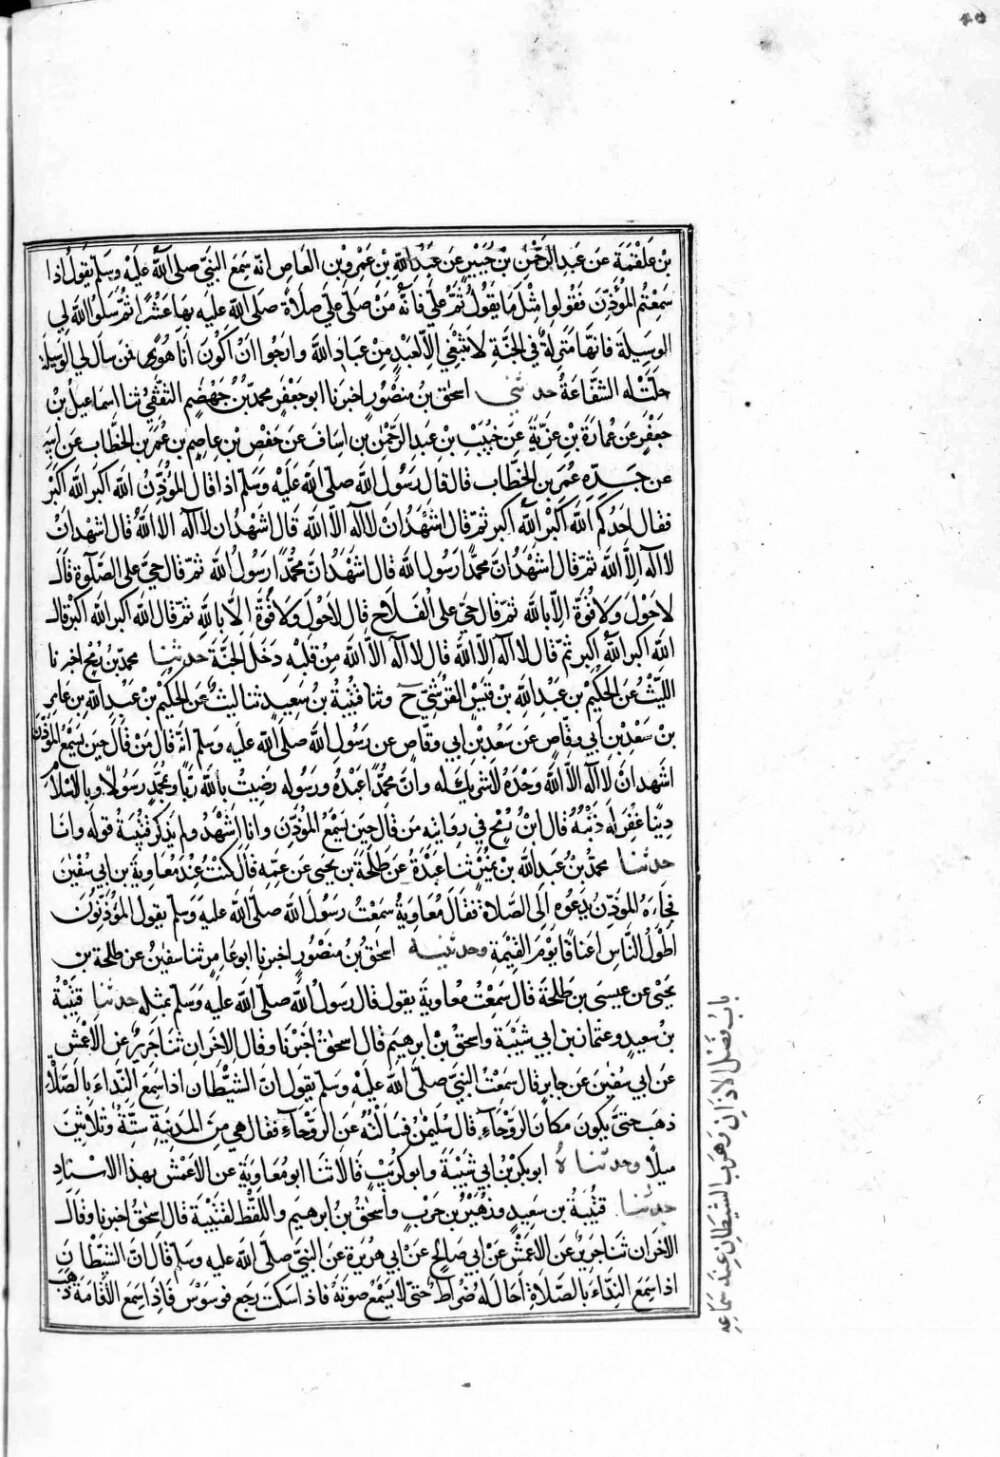 بن علقمة عن عبد الرحمن بن جبير عن عبد الله بن عمرو بن العاص انه سمع النبي صلى الله عليه وسلم يقول اذا
سمعتم المؤذن فقولوا مثل ما يقول ثم صلوا علي فانه من صلى علي صلاة صلى الله عليه بها عشرا ثم سلوا الله لي
الوسيلة فانها منزلة في الجنة لا تنبغي الا لعبد من عباد الله وارجوا ان اكون انا هو فمن سأل لي الوسيلة
حلت له الشفاعة حدثني اسحق بن منصور اخبرنا ابو جعفر محمد بن جهضم الثقفي ثنا اسماعيل بن
جعفر عن عمارة بن غزية عن خبيب بن عبد الرحمن بن اساف عن حفص بن عاصم بن عمر بن الخطاب عن ابيه
عن جده عمر بن الخطاب قال قال رسول الله صلى الله عليه وسلم اذا قال المؤذن الله اكبر الله اكبر
فقال احدكم الله اكبر الله اكبر ثم قال اشهد ان لا اله الا الله قال اشهد ان لا اله الا الله قال اشهد ان
لا اله الا الله ثم قال اشهد ان محمدا رسول الله قال اشهد ان محمدا رسول الله ثم قال حي على الصلوة قال
لا حول ولا قوة الا بالله ثم قال حي على الفلاح قال لا حول ولا قوة الا بالله ثم قال الله اكبر الله اكبر قال
الله اكبر الله اكبر ثم قال لا اله الا الله قال لا اله الا الله من قلبه دخل الجنة حدثنا محمد بن رمح اخبرنا
الليث عن الحكيم بن عبد الله بن قيس القرشي ح وثنا قتيبة بن سعيد ثنا ليث عن الحكيم بن عبد الله بن عامر
بن سعد بن ابي وقاص عن سعد بن ابي وقاص عن رسول الله صلى الله عليه وسلم انه قال من قال حين يسمع المؤذن
اشهد ان لا اله الا الله وحده لا شريك له وان محمدا عبده ورسوله رضيت بالله ربا وبمحمد رسولا وبالاسلام
دينا غفر له ذنبه قال ابن رمح في روايته من قال حين يسمع المؤذن وانا اشهد ولم يذكر قتيبة قوله وانا
حدثنا محمد بن عبد الله بن نمير ثنا عبدة عن طلحة بن يحيى عن عمه قال كنت عند معاوية بن ابي سفين
فجاءه المؤذن يدعوه الى الصلاة فقال معاوية سمعت رسول الله صلى الله عليه وسلم يقول المؤذنون
اطول الناس اعناقا يوم القيمة وحدثنيه اسحق بن منصور اخبرنا ابو عامر ثنا سفين عن طلحة بن
يحيى عن عيسى بن طلحة قال سمعت معاوية يقول قال رسول الله صلى الله عليه وسلم بمثله حدثنا قتيبة
بن سعيد وعثمان بن ابي شيبة واسحق بن ابرهيم قال اسحق اخبرنا وقال الاخران ثنا جرير عن الاعمش
عن ابي سفين عن جابر قال سمعت النبي صلى الله عليه وسلم يقول ان الشيطان اذا سمع النداء بالصلاة
ذهب حتى يكون مكان الروحاء قال سليمن فسالته عن الروحاء فقال هي من المدينة ستة وثلاثين
ميلا وحدثناه ابو بكر بن ابي شيبة وابو كريب قالا ثنا ابو معاوية عن الاعمش بهذا الاسناد
حدثنا قتيبة بن سعيد وزهير بن حرب واسحق بن ابرهيم واللفظ لقتيبة قال اسحق اخبرنا وقال
الاخران ثنا جرير عن الاعمش عن ابي صالح عن ابي هريرة عن النبي صلى الله عليه وسلم قال ان الشيطان
اذا سمع النداء بالصلاة احال له ضراط حتى لا يسمع صوته فاذا سكت رجع فوسوس فاذا سمع الاقامة ذهب
باب فضل الاذان وهرب الشيطان عند سماعه